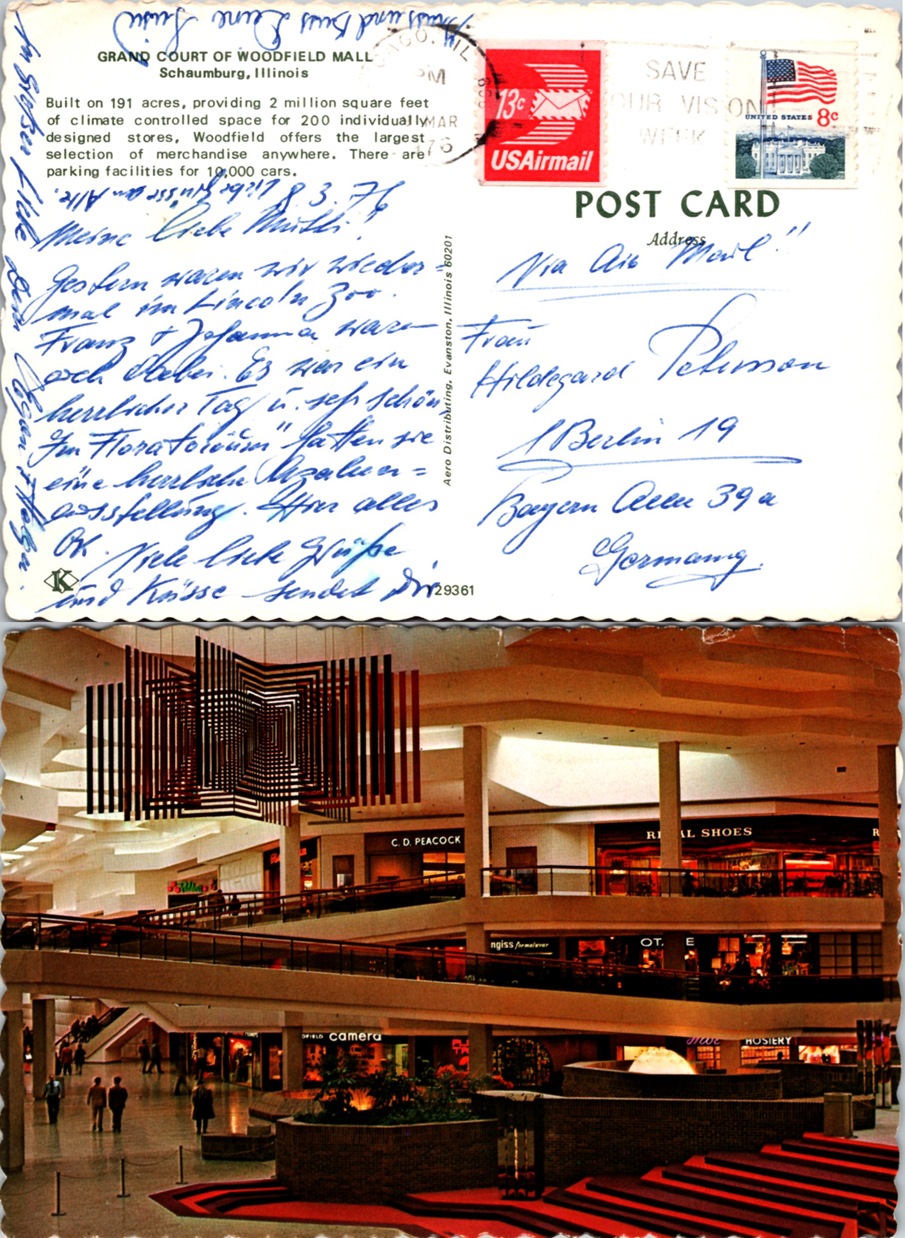 Gruss und Kuss Deine Luise
GRAND COURT OF WOODFIELD MALL
Schaumburg, Illinois
Built on 191 acres, providing 2 million square feet
of climate controlled space for 200 individually
designed stores, Woodfield offers the largest
selection of merchandise anywhere. There are
parking facilities for 10,000 cars.
Liebe Grüsse an Alle.
8.3.76
Meine liebe Mutti!
Gestern waren wir wieder=
mal im Lincoln Zoo.
Franz + Johanna waren
auch dabei. Es war ein
herrlicher Tag u. sehr schön.
Im "Floratorium" hatten sie
eine herrliche Azaleen=
ausstellung. Hier alles
OK. Viele liebe Grüße
und Küsse sendet Dir
In großer Liebe Dein
K
29361
Aero Distributing, Evanston, Illinois 60201
CHICAGO, IL
PM
MAR
1976
606
13c
USAirmail
SAVE
YOUR VISION
WEEK
UNITED STATES 8c
POST CARD
Address
Via Air Mail!!
Frau
Hildegard Petersson
1 Berlin 19
Bayern Allee 39a
Germany
C.D. PEACOCK
REGAL SHOES
R
ngiss formalwear
OTA E
FIELD camera
HOSIERY